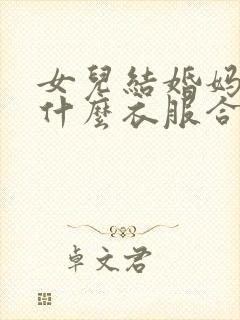 女兒結婚媽
什麼衣服合
卓文君